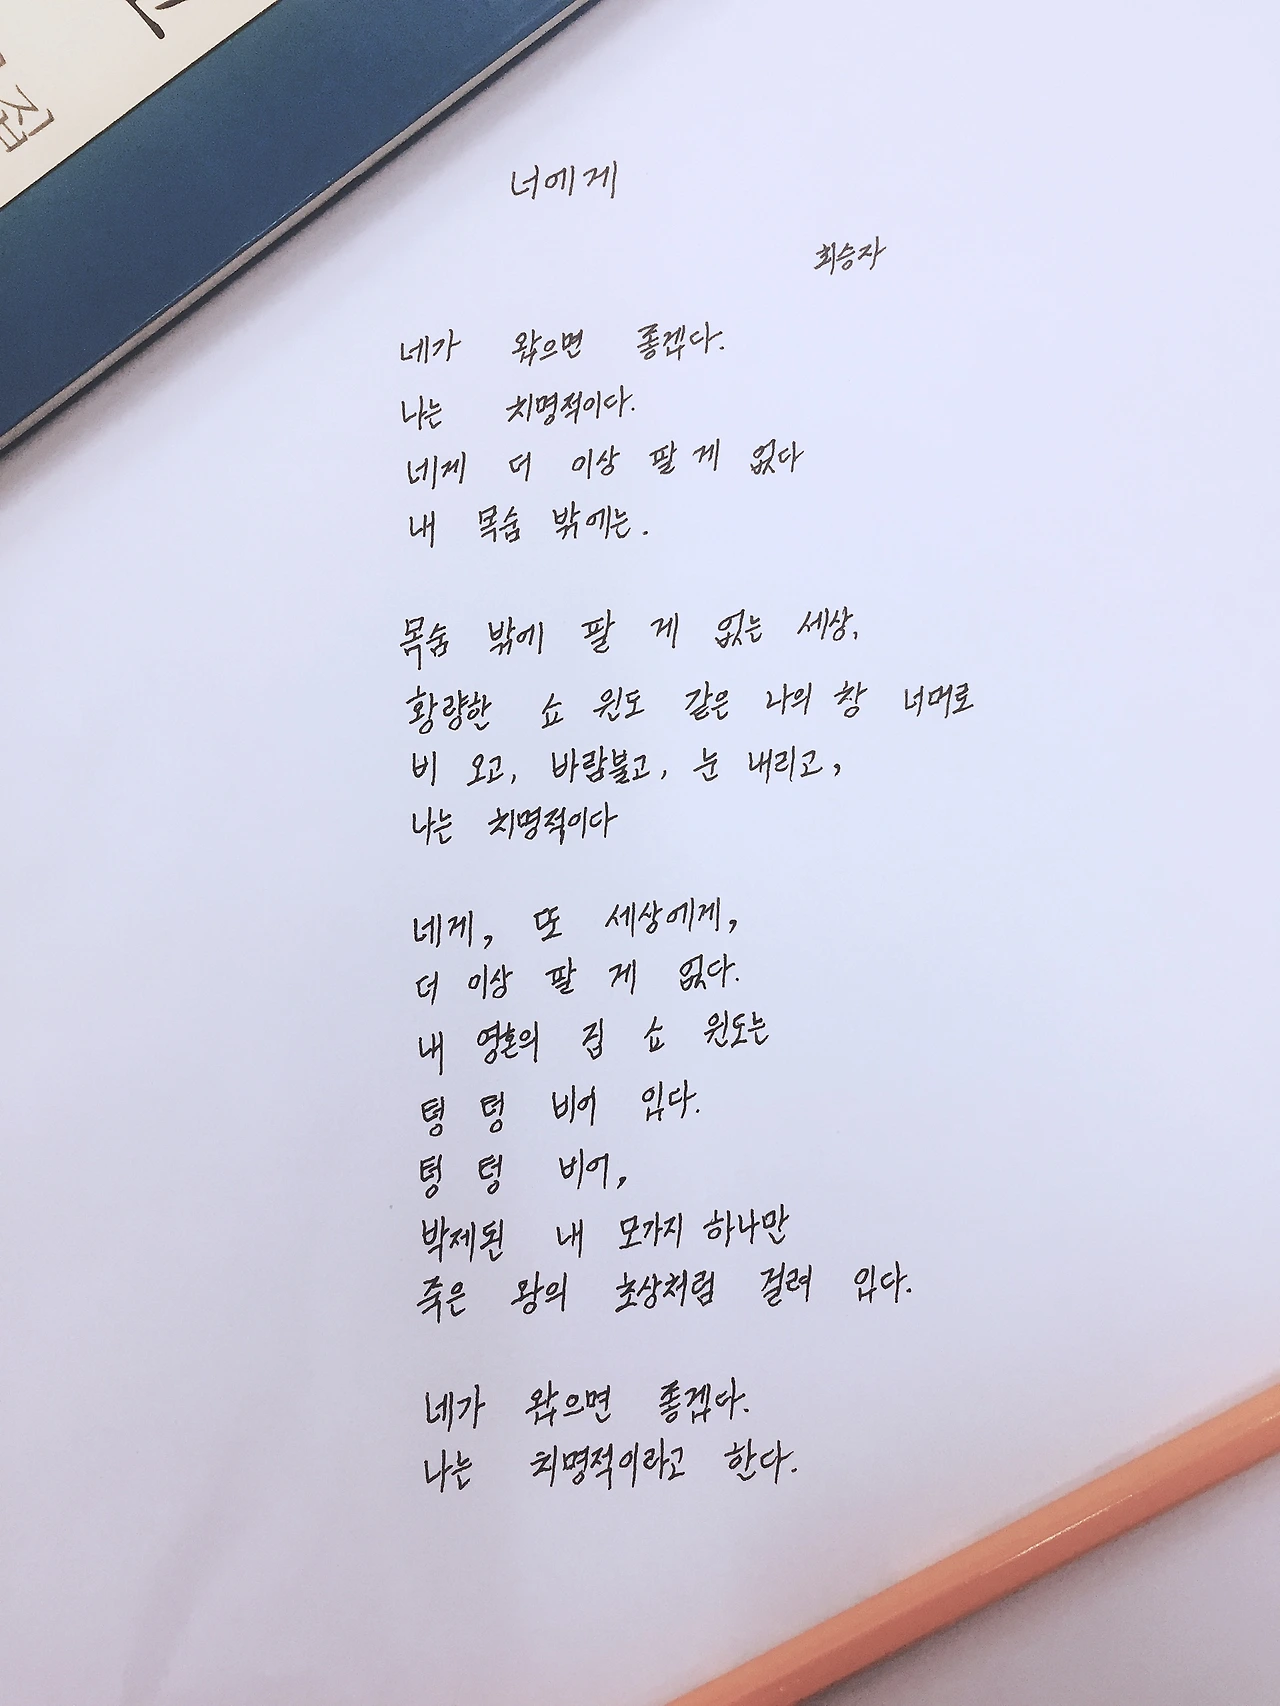 집
너에게
최승자
네가 왔으면 좋겠다.
나는 치명적이다.
네게 더 이상 팔 게 없다
내 목숨 밖에는.
목숨 밖에 팔 게 없는 세상,
황량한 쇼 윈도 같은 나의 창 너머로
비 오고, 바람불고, 눈 내리고,
나는 치명적이다
네게, 또 세상에게,
더 이상 팔 게 없다.
내 영혼의 집 쇼 윈도는
텅 텅 비어 있다.
텅 텅 비어,
박제된 내 모가지 하나만
죽은 왕의 초상처럼 걸려 있다.
네가 왔으면 좋겠다.
나는 치명적이라고 한다.